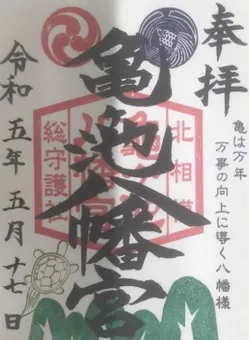 奉拝
亀は万年
万事の向上に導く八幡様
北相模
総守護社
亀ヶ池八幡宮
令和五年五月十七日